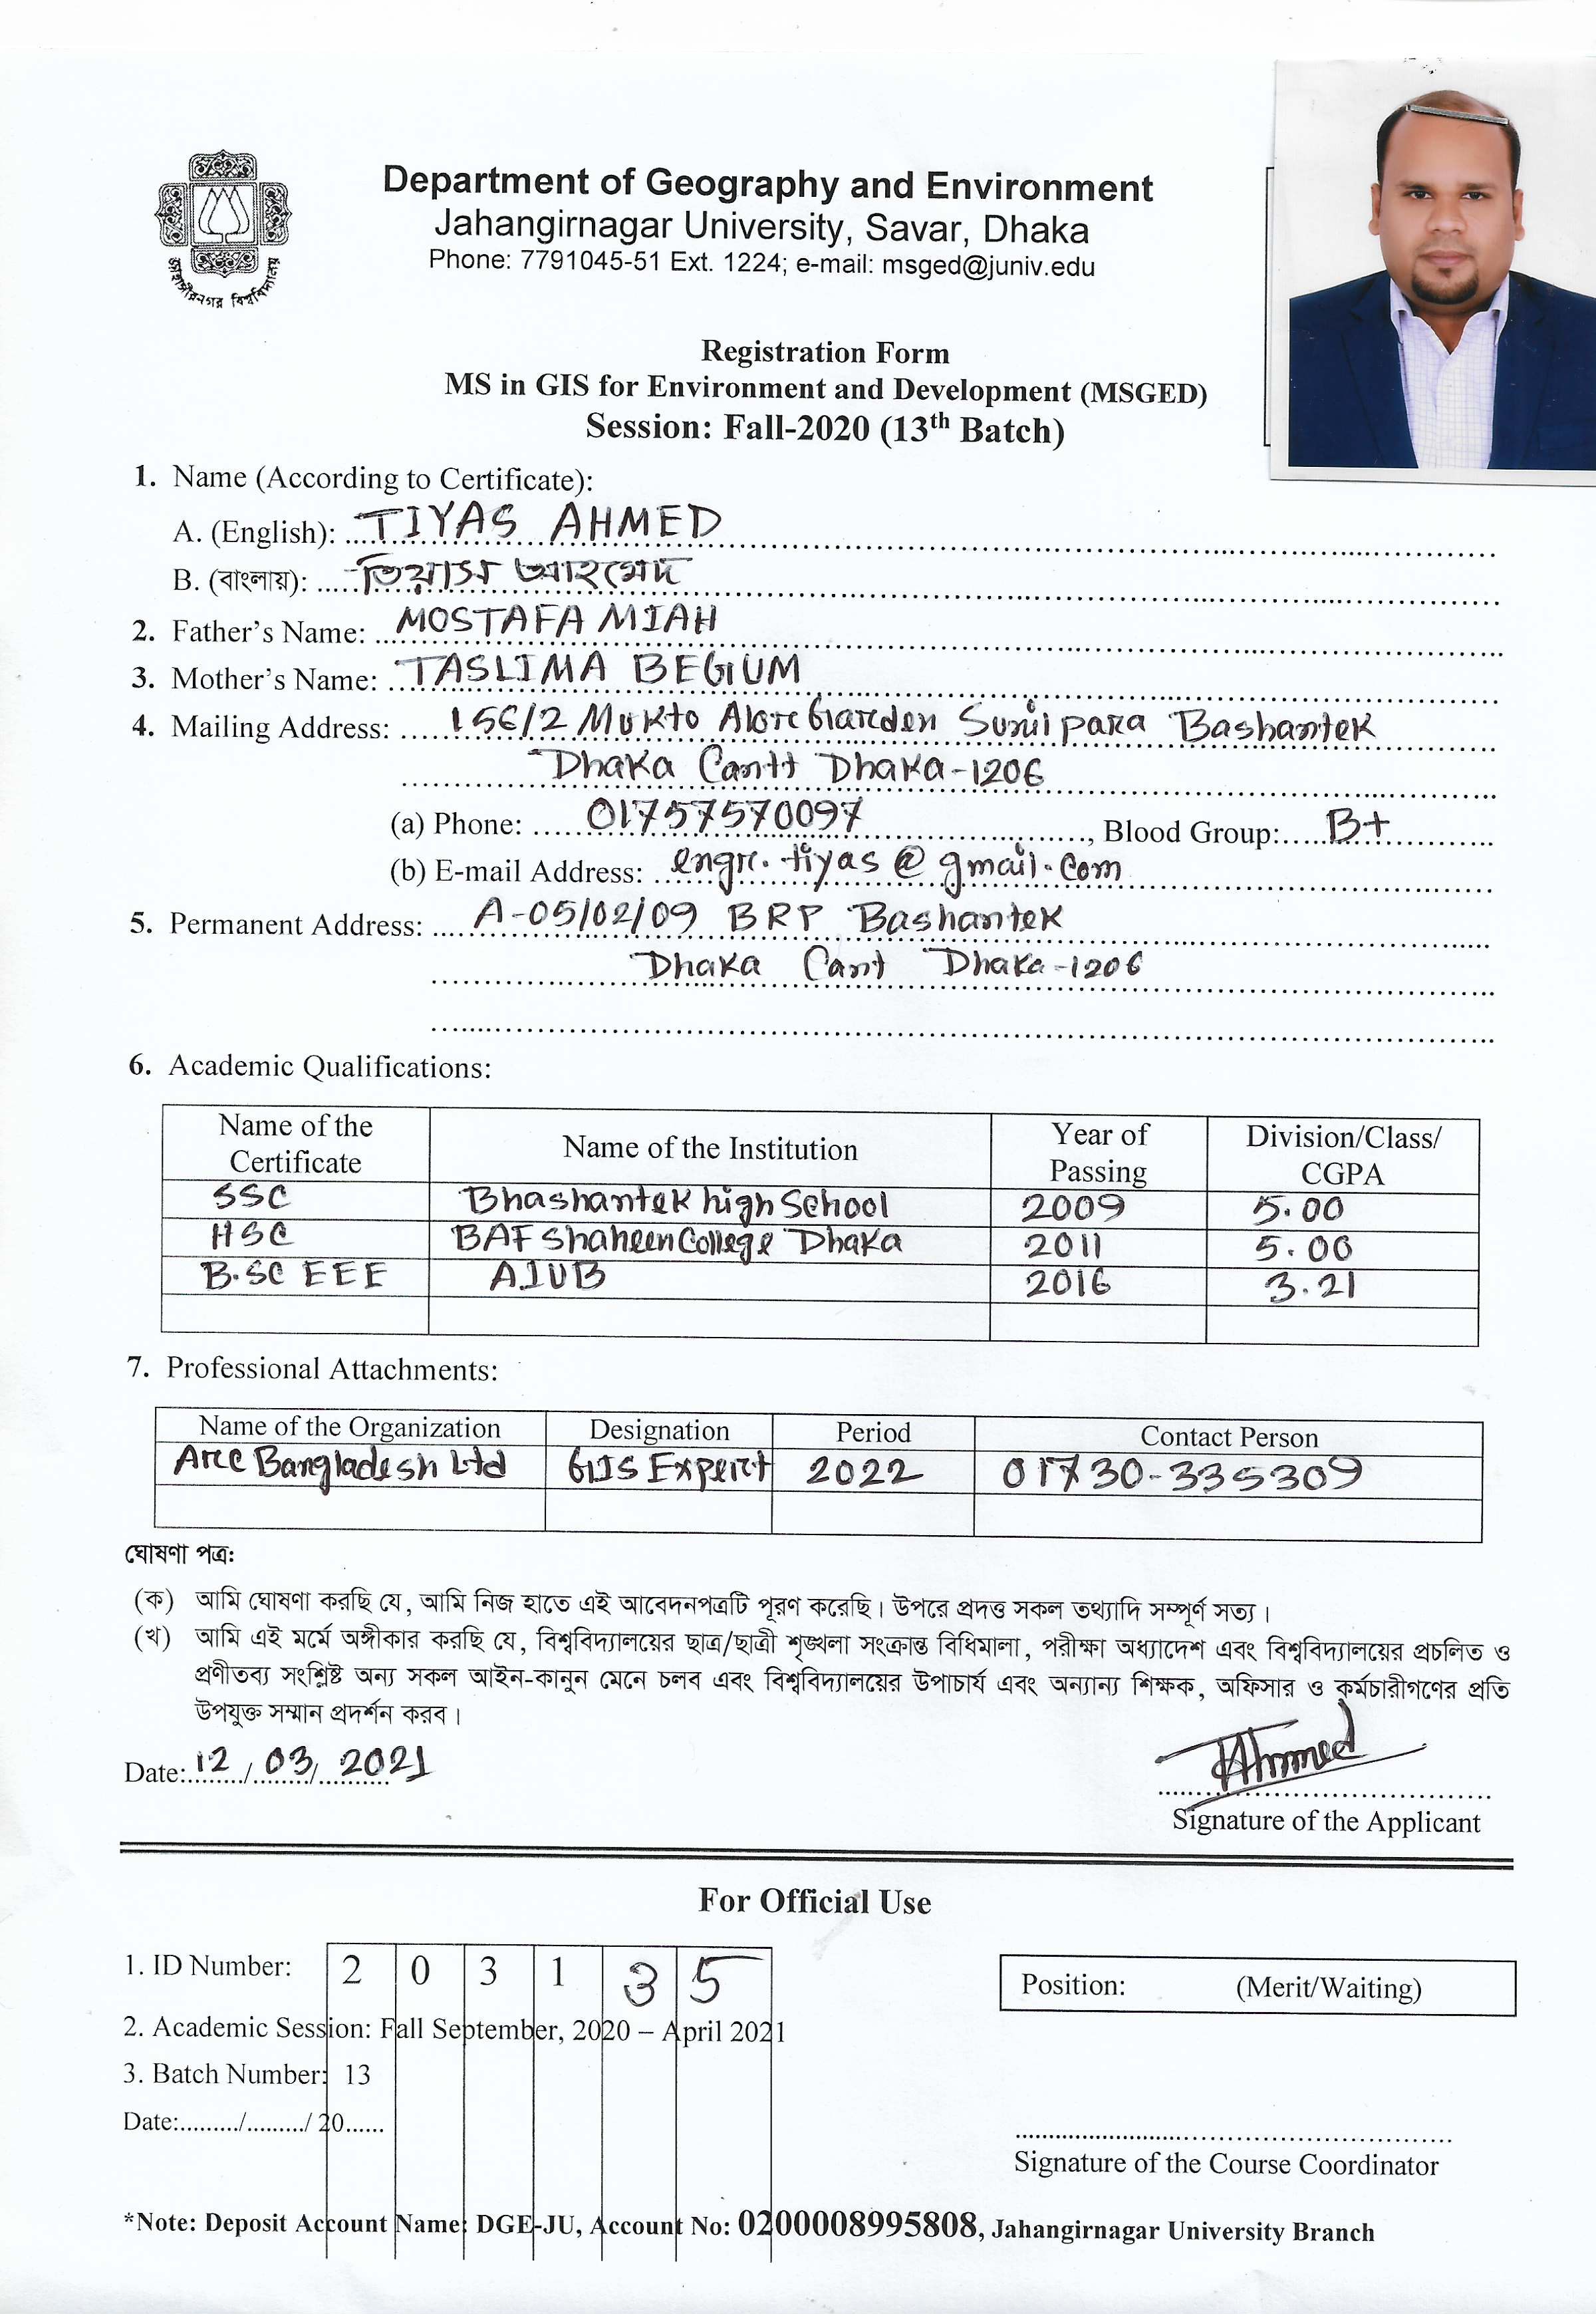 জাহাঙ্গীরনগর বিশ্ববিদ্যালয়
Department of Geography and Environment
Jahangirnagar University, Savar, Dhaka
Phone: 7791045-51 Ext. 1224; e-mail: msged@juniv.edu
Registration Form
MS in GIS for Environment and Development (MSGED)
Session: Fall-2020 (13th Batch)
1. Name (According to Certificate):
A. (English): TIYAS AHMED
B. (বাংলায়): তিয়াস আহমেদ
2. Father's Name: MOSTAFA MIAH
3. Mother's Name: TASLIMA BEGUM
4. Mailing Address: 156/2 Mukto Alor Garden Sunil para Bashantek
Dhaka Cantt Dhaka-1206
(a) Phone: 01757570097, Blood Group: B+
(b) E-mail Address: engr.tiyas@gmail.com
5. Permanent Address: A-05/02/09 BRP Bashantek
Dhaka Cant Dhaka-1206
6. Academic Qualifications:
Name of the Certificate Name of the Institution Year of Passing Division/Class/CGPA
SSC Bhashantek high School 2009 5.00
HSC BAF Shaheen College Dhaka 2011 5.00
B.SC EEE AIUB 2016 3.21
7. Professional Attachments:
Name of the Organization Designation Period Contact Person
Arc Bangladesh Ltd GIS Expert 2022 01730-335309
ঘোষণা পত্র:
(ক) আমি ঘোষণা করছি যে, আমি নিজ হাতে এই আবেদনপত্রটি পূরণ করেছি। উপরে প্রদত্ত সকল তথ্যাদি সম্পূর্ণ সত্য।
(খ) আমি এই মর্মে অঙ্গীকার করছি যে, বিশ্ববিদ্যালয়ের ছাত্র/ছাত্রী শৃঙ্খলা সংক্রান্ত বিধিমালা, পরীক্ষা অধ্যাদেশ এবং বিশ্ববিদ্যালয়ের প্রচলিত ও
প্রণীতব্য সংশ্লিষ্ট অন্য সকল আইন-কানুন মেনে চলব এবং বিশ্ববিদ্যালয়ের উপাচার্য এবং অন্যান্য শিক্ষক, অফিসার ও কর্মচারীগণের প্রতি
উপযুক্ত সম্মান প্রদর্শন করব।
Date: 12/03/2021
TAhmed
Signature of the Applicant
For Official Use
1. ID Number: 2 0 3 1 3 5
Position: (Merit/Waiting)
2. Academic Session: Fall September, 2020 – April 2021
3. Batch Number: 13
Date:........./........./ 20......
Signature of the Course Coordinator
*Note: Deposit Account Name: DGE-JU, Account No: 0200008995808, Jahangirnagar University Branch